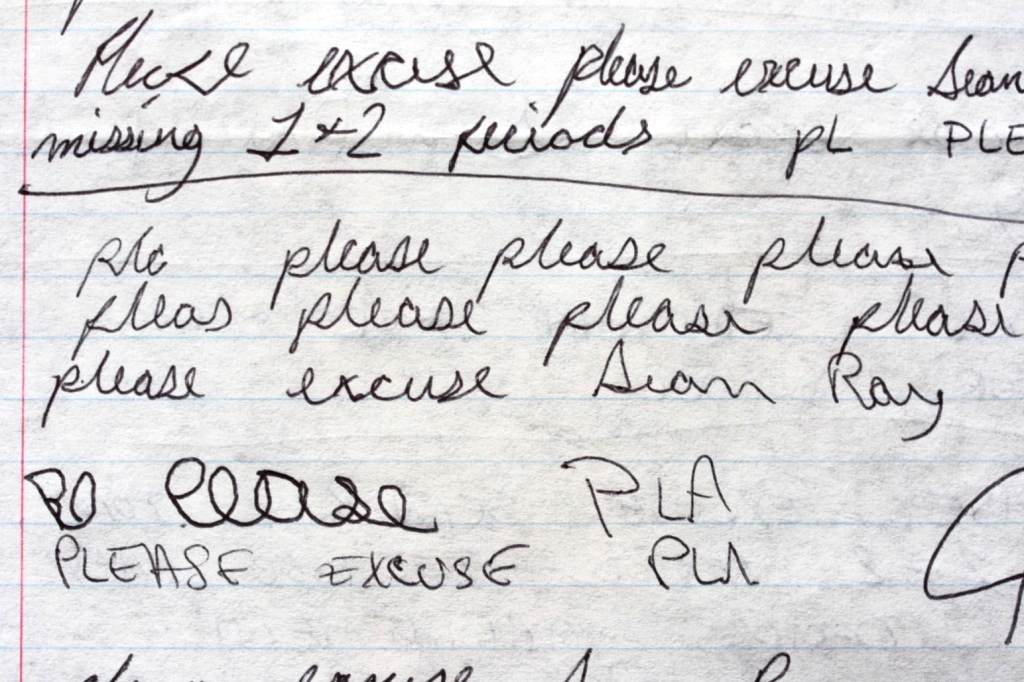 Please excuse please excuse Sean
missing 1+2 periods pL PLE
pla please please please p
pleas please please please
please excuse Sean Ray
Pl Please PLA
PLEASE EXCUSE PLA
excuse